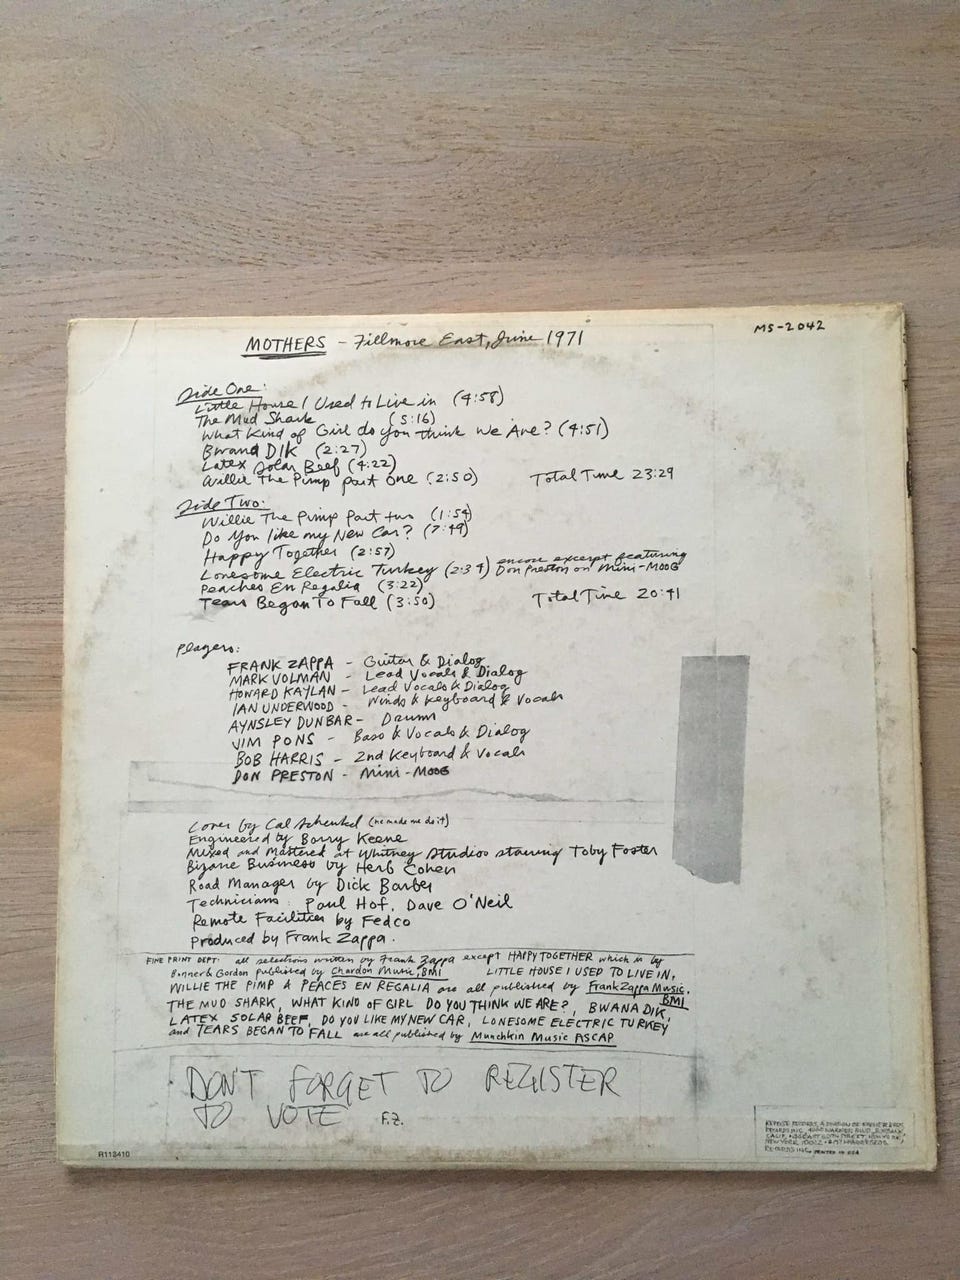 MOTHERS - Fillmore East, June 1971
MS-2042
Side One:
Little House I Used to Live in (4:58)
The Mud Shark (5:16)
What Kind of Girl do you think we Are? (4:51)
Bwana DIK (2:27)
Latex Solar Beef (4:22)
Willie The Pimp part one (2:50) Total Time 23:29
Side Two:
Willie The Pimp Part two (1:54)
Do You like my New Car? (7:49)
Happy Together (2:57)
Lonesome Electric Turkey (2:34) encore excerpt featuring
Don Preston on Mini-MOOG
Peaches En Regalia (3:22)
Tears Began To Fall (3:50) Total Time 20:41
Players:
FRANK ZAPPA - Guitar & Dialog
MARK VOLMAN - Lead Vocals & Dialog
HOWARD KAYLAN - Lead Vocals & Dialog
IAN UNDERWOOD - Winds & Keyboard & Vocals
AYNSLEY DUNBAR - Drums
JIM PONS - Bass & Vocals & Dialog
BOB HARRIS - 2nd Keyboard & Vocals
DON PRESTON - Mini-MOOG
Cover by Cal Schenkel (he made me do it)
Engineered by Barry Keene
Mixed and Mastered at Whitney Studios starring Toby Foster
Bizarre Business by Herb Cohen
Road Manager by Dick Barber
Technicians: Paul Hof, Dave O'Neil
Remote Facilities by Fedco
Produced by Frank Zappa.
FINE PRINT DEPT: all selections written by Frank Zappa except HAPPY TOGETHER which is by
Bonner & Gordon published by Chardon Music, BMI LITTLE HOUSE I USED TO LIVE IN,
WILLIE THE PIMP & PEACES EN REGALIA are all published by Frank Zappa Music,
BMI
THE MUD SHARK, WHAT KIND OF GIRL DO YOU THINK WE ARE?, BWANA DIK,
LATEX SOLAR BEEF, DO YOU LIKE MY NEW CAR, LONESOME ELECTRIC TURKEY
and TEARS BEGAN TO FALL are all published by Munchkin Music ASCAP
DON'T FORGET TO REGISTER
TO VOTE F.Z.
R113410
REPRISE RECORDS, A DIVISION OF WARNER BROS.
RECORDS INC. 4000 WARNER BLVD., BURBANK,
CALIF.
NEW YORK
RECORDS INC. PRINTED IN USA